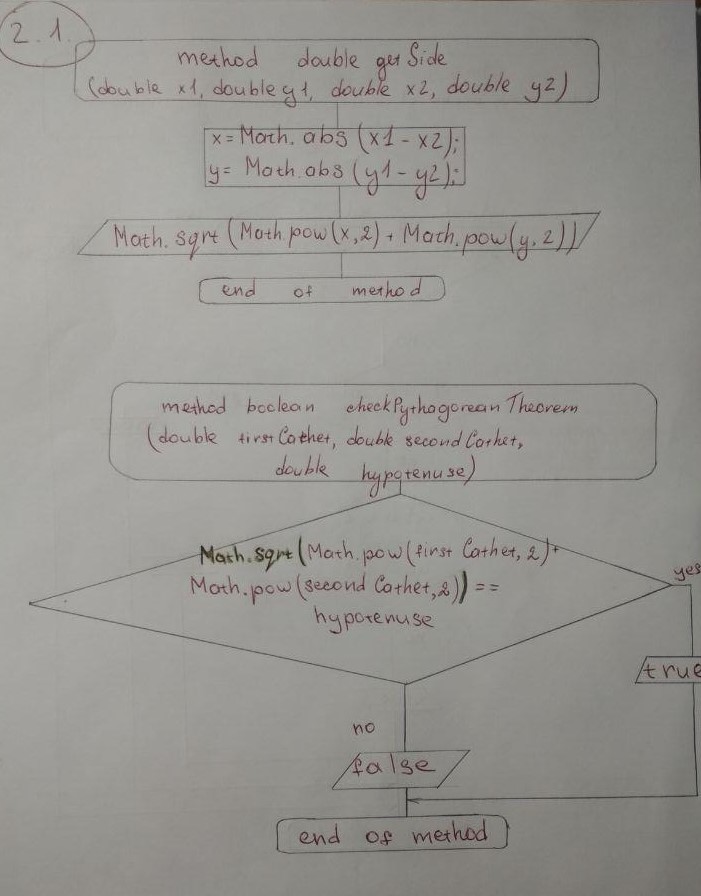 2.1.
method double getSide
(double x1, double y1, double x2, double y2)
x= Math.abs (x1 - x2);
y= Math.abs (y1 - y2);
Math.sqrt (Math.pow(x,2) + Math.pow(y,2))
end of method
method boolean checkPythagorean Theorem
(double first Cathet, double second Cathet,
double hypotenuse)
Math.sqrt(Math.pow(first Cathet, 2)+
Math.pow(second Cathet,2)) ==
hypotenuse
yes
true
no
false
end of method